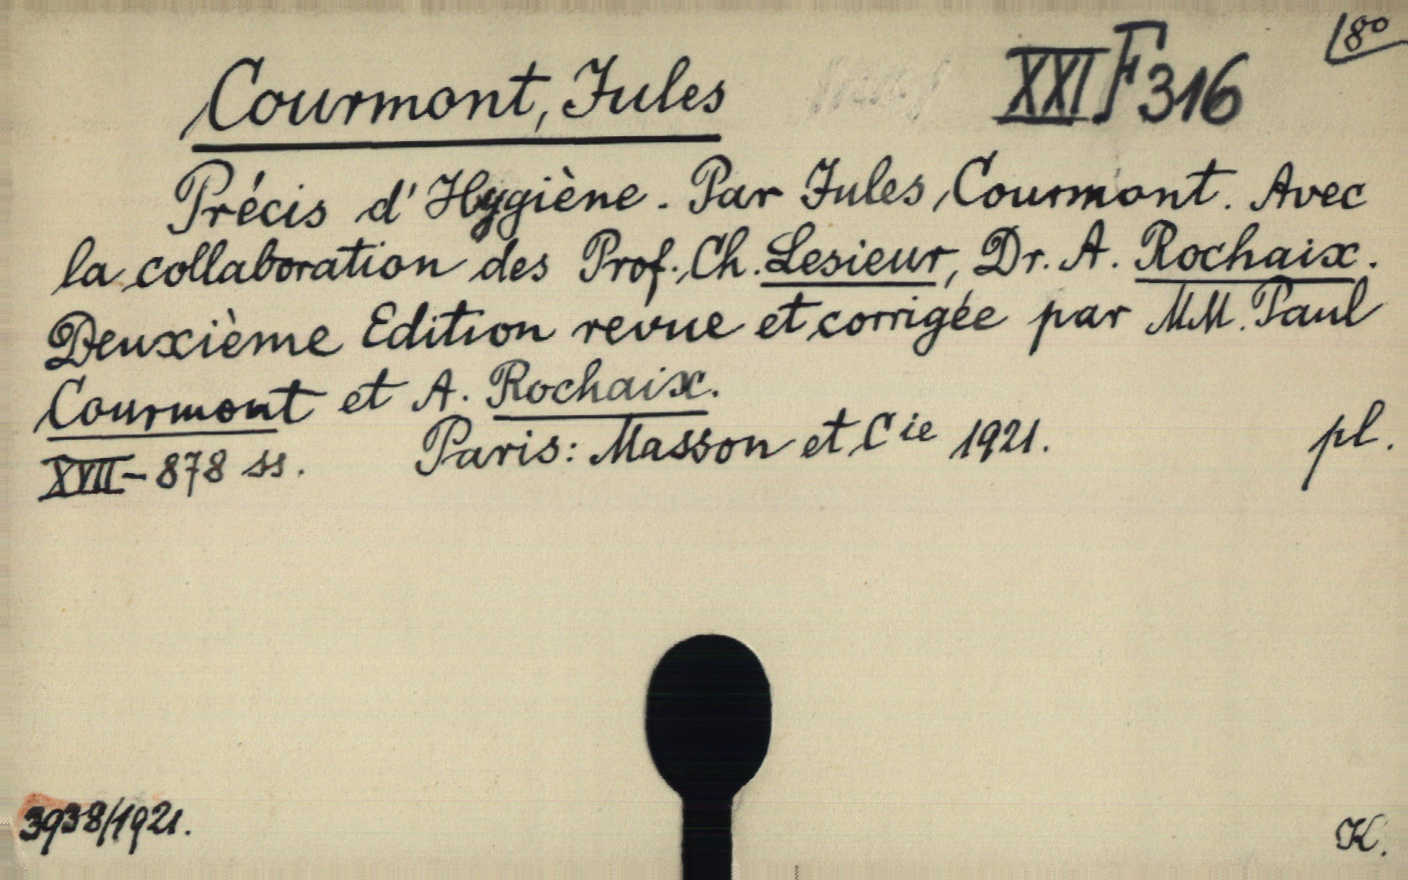 8°
Courmont, Jules XXI F 316
Précis d'Hygiène. Par Jules Courmont. Avec
la collaboration des Prof. Ch. Lesieur, Dr. A. Rochaix.
Deuxième Edition revue et corrigée par MM. Paul
Courmont et A. Rochaix.
XVII-878 ss. Paris: Masson et Cie 1921. pl.
3938/1921. K.